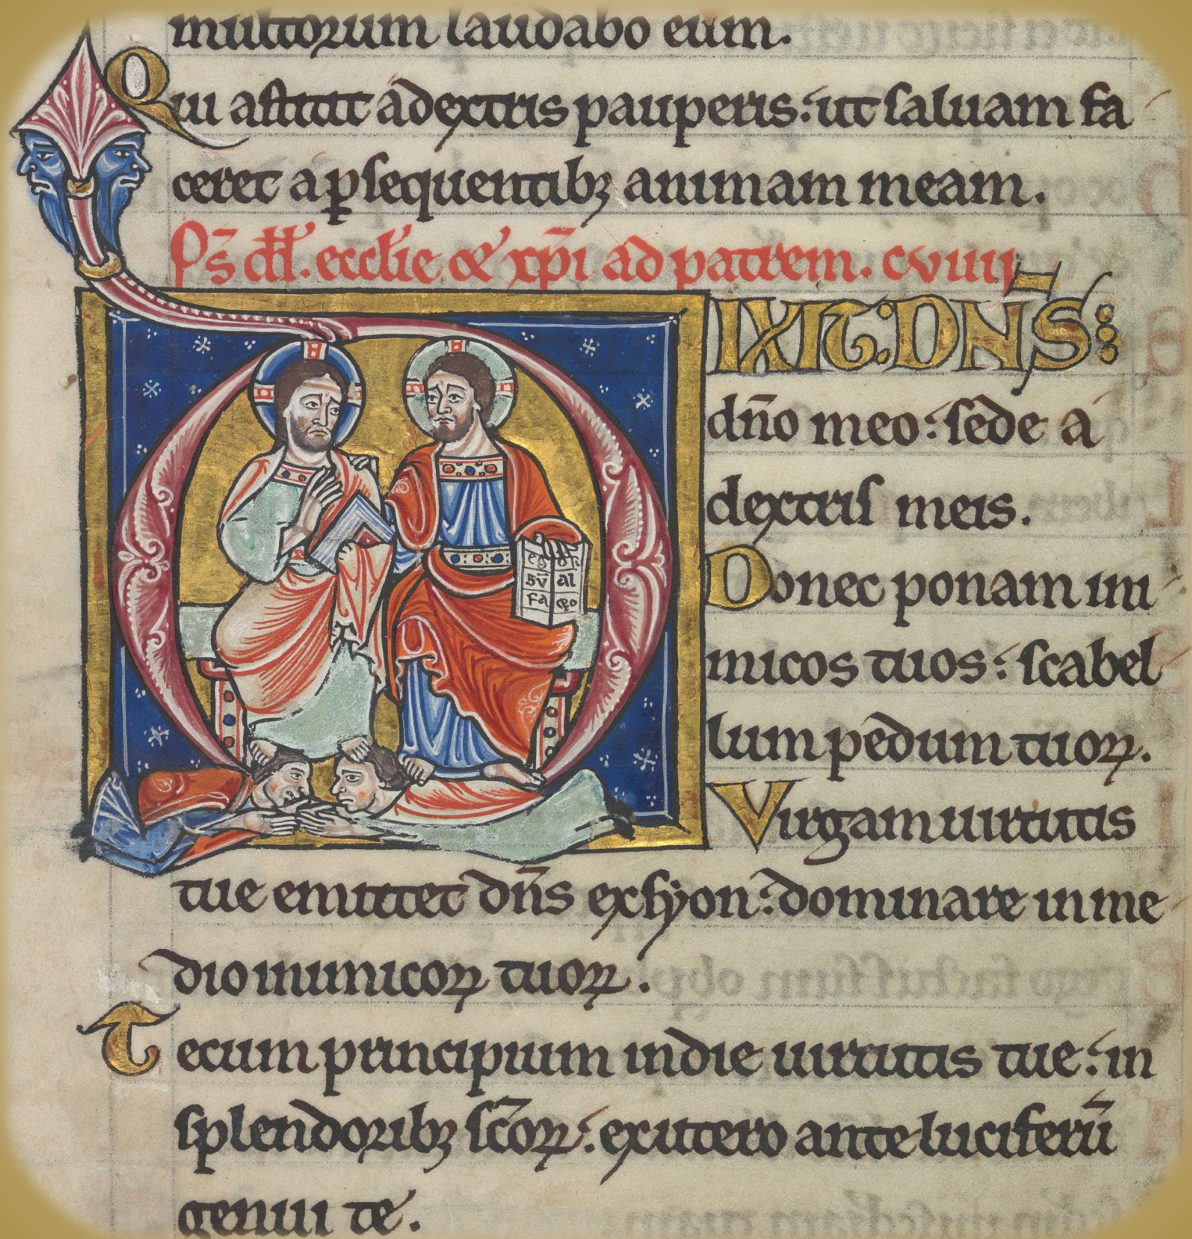 multorum laudabo eum.
Qui astitit adextris pauperis: ut saluam fa
ceret a ꝑsequentibꝫ animam meam.
Ps̄ dd̄. ecclīe & xp̄i ad patrem. cviiij
IXIT: DN̄S:
dn̄o meo: sede a
dextris meis.
Donec ponam ini
micos tuos: scabel
lum pedum tuoꝝ.
Virgam uirtutis
tue emittet dn̄s exsyon: dominare in me
dio inimicoꝝ tuoꝝ.
Tecum principium in die uirtutis tue: in
splendoribꝫ sc̄oꝝ: ex utero ante luciferū
genui te.